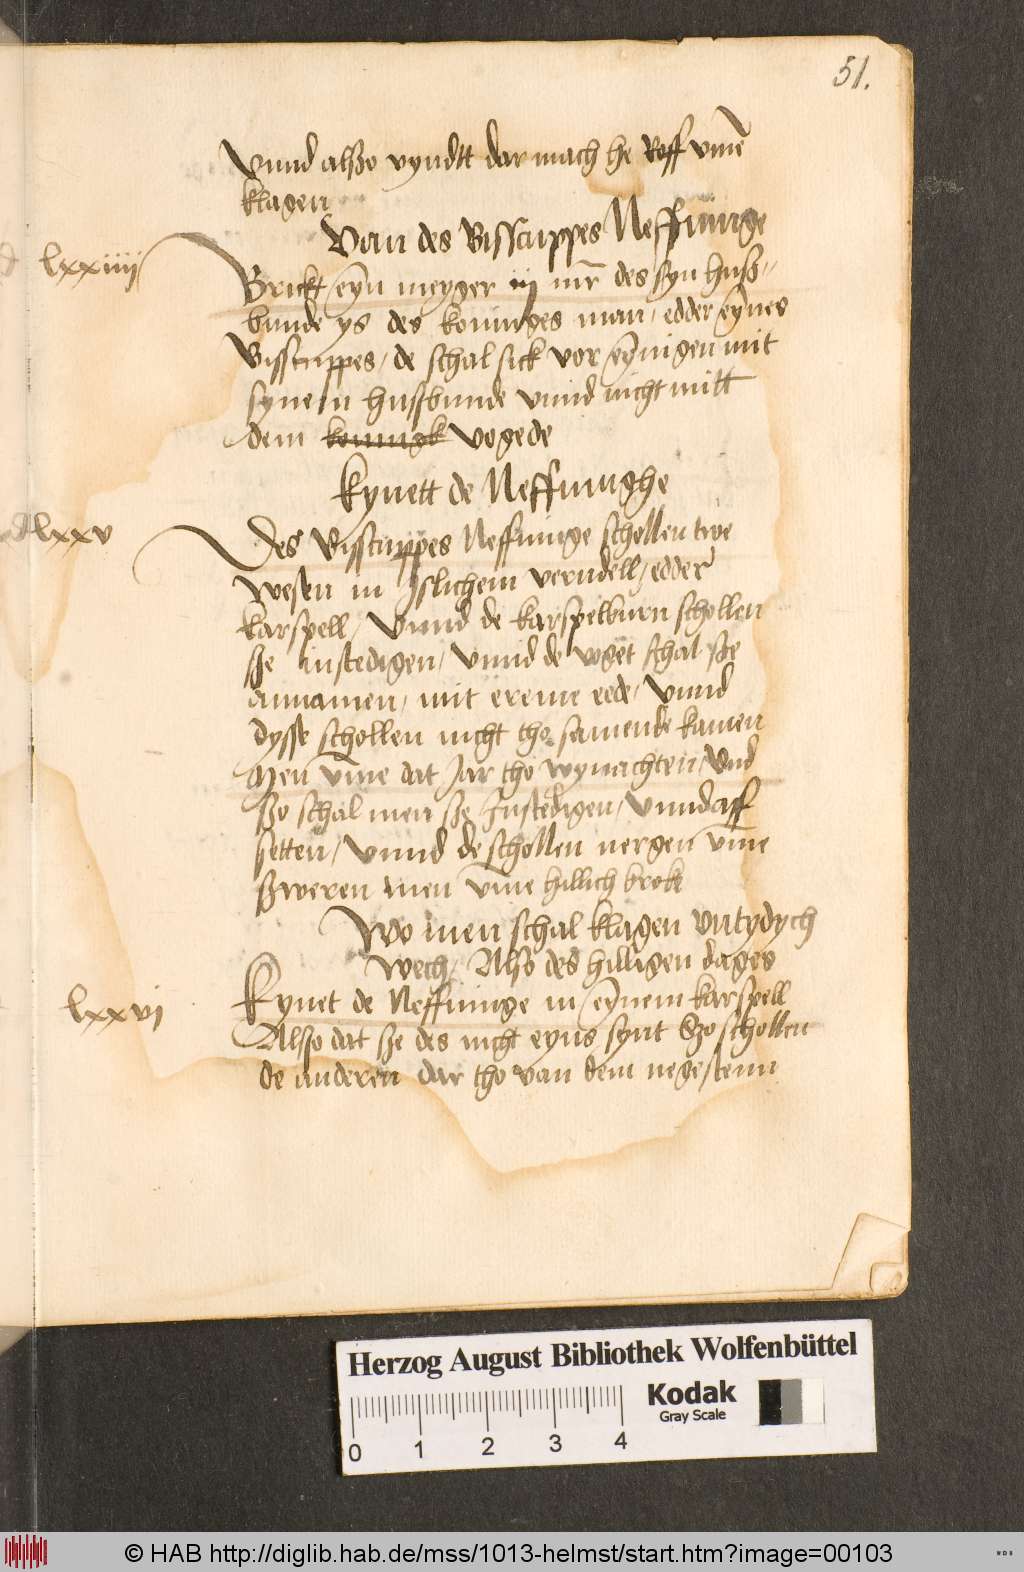 51.
Vnnd alßo vyndtt dar mach he Roff vm̄e
klagen
Van des Bisscuppes Neffninge
lxxiiii
Brickt eyn meyger iij mr̄ des syn huß-
bunde ys des koninges man, edder eynes
Bisscuppes, de schal sick vor eynigen mit
synem hussbunde vnnd nicht mitt
dem konnigk vogede
Kynett de Neffninghe
lxxv
Des Bisscuppes Neffninge schollen twe
wesen in Islichem verndell, edder
karspell, Vnnd de karspelburn schollen
sze instedigen, Vnnd de voget schal sze
annamen, mit ereme eede, Vnnd
dysse schollen nicht tho samende kamen
Men vm̄e dat Jar tho wynachten, Vnd
szo schal men sze Instedigen, Vnnd aff
setten, Vnnd de schollen nergen vm̄e
szweren men vm̄e hillich broke
Wo men schal klagen vntydych
wech, Also des hilligen dages
lxxvi
Kynet de Neffninge in eynem karspell
Alsso dat sze des nicht eyns synt Szo schollen
de anderen dar tho van dem negestenn
Herzog August Bibliothek Wolfenbüttel
Kodak
Gray Scale
0 1 2 3 4
© HAB http://diglib.hab.de/mss/1013-helmst/start.htm?image=00103